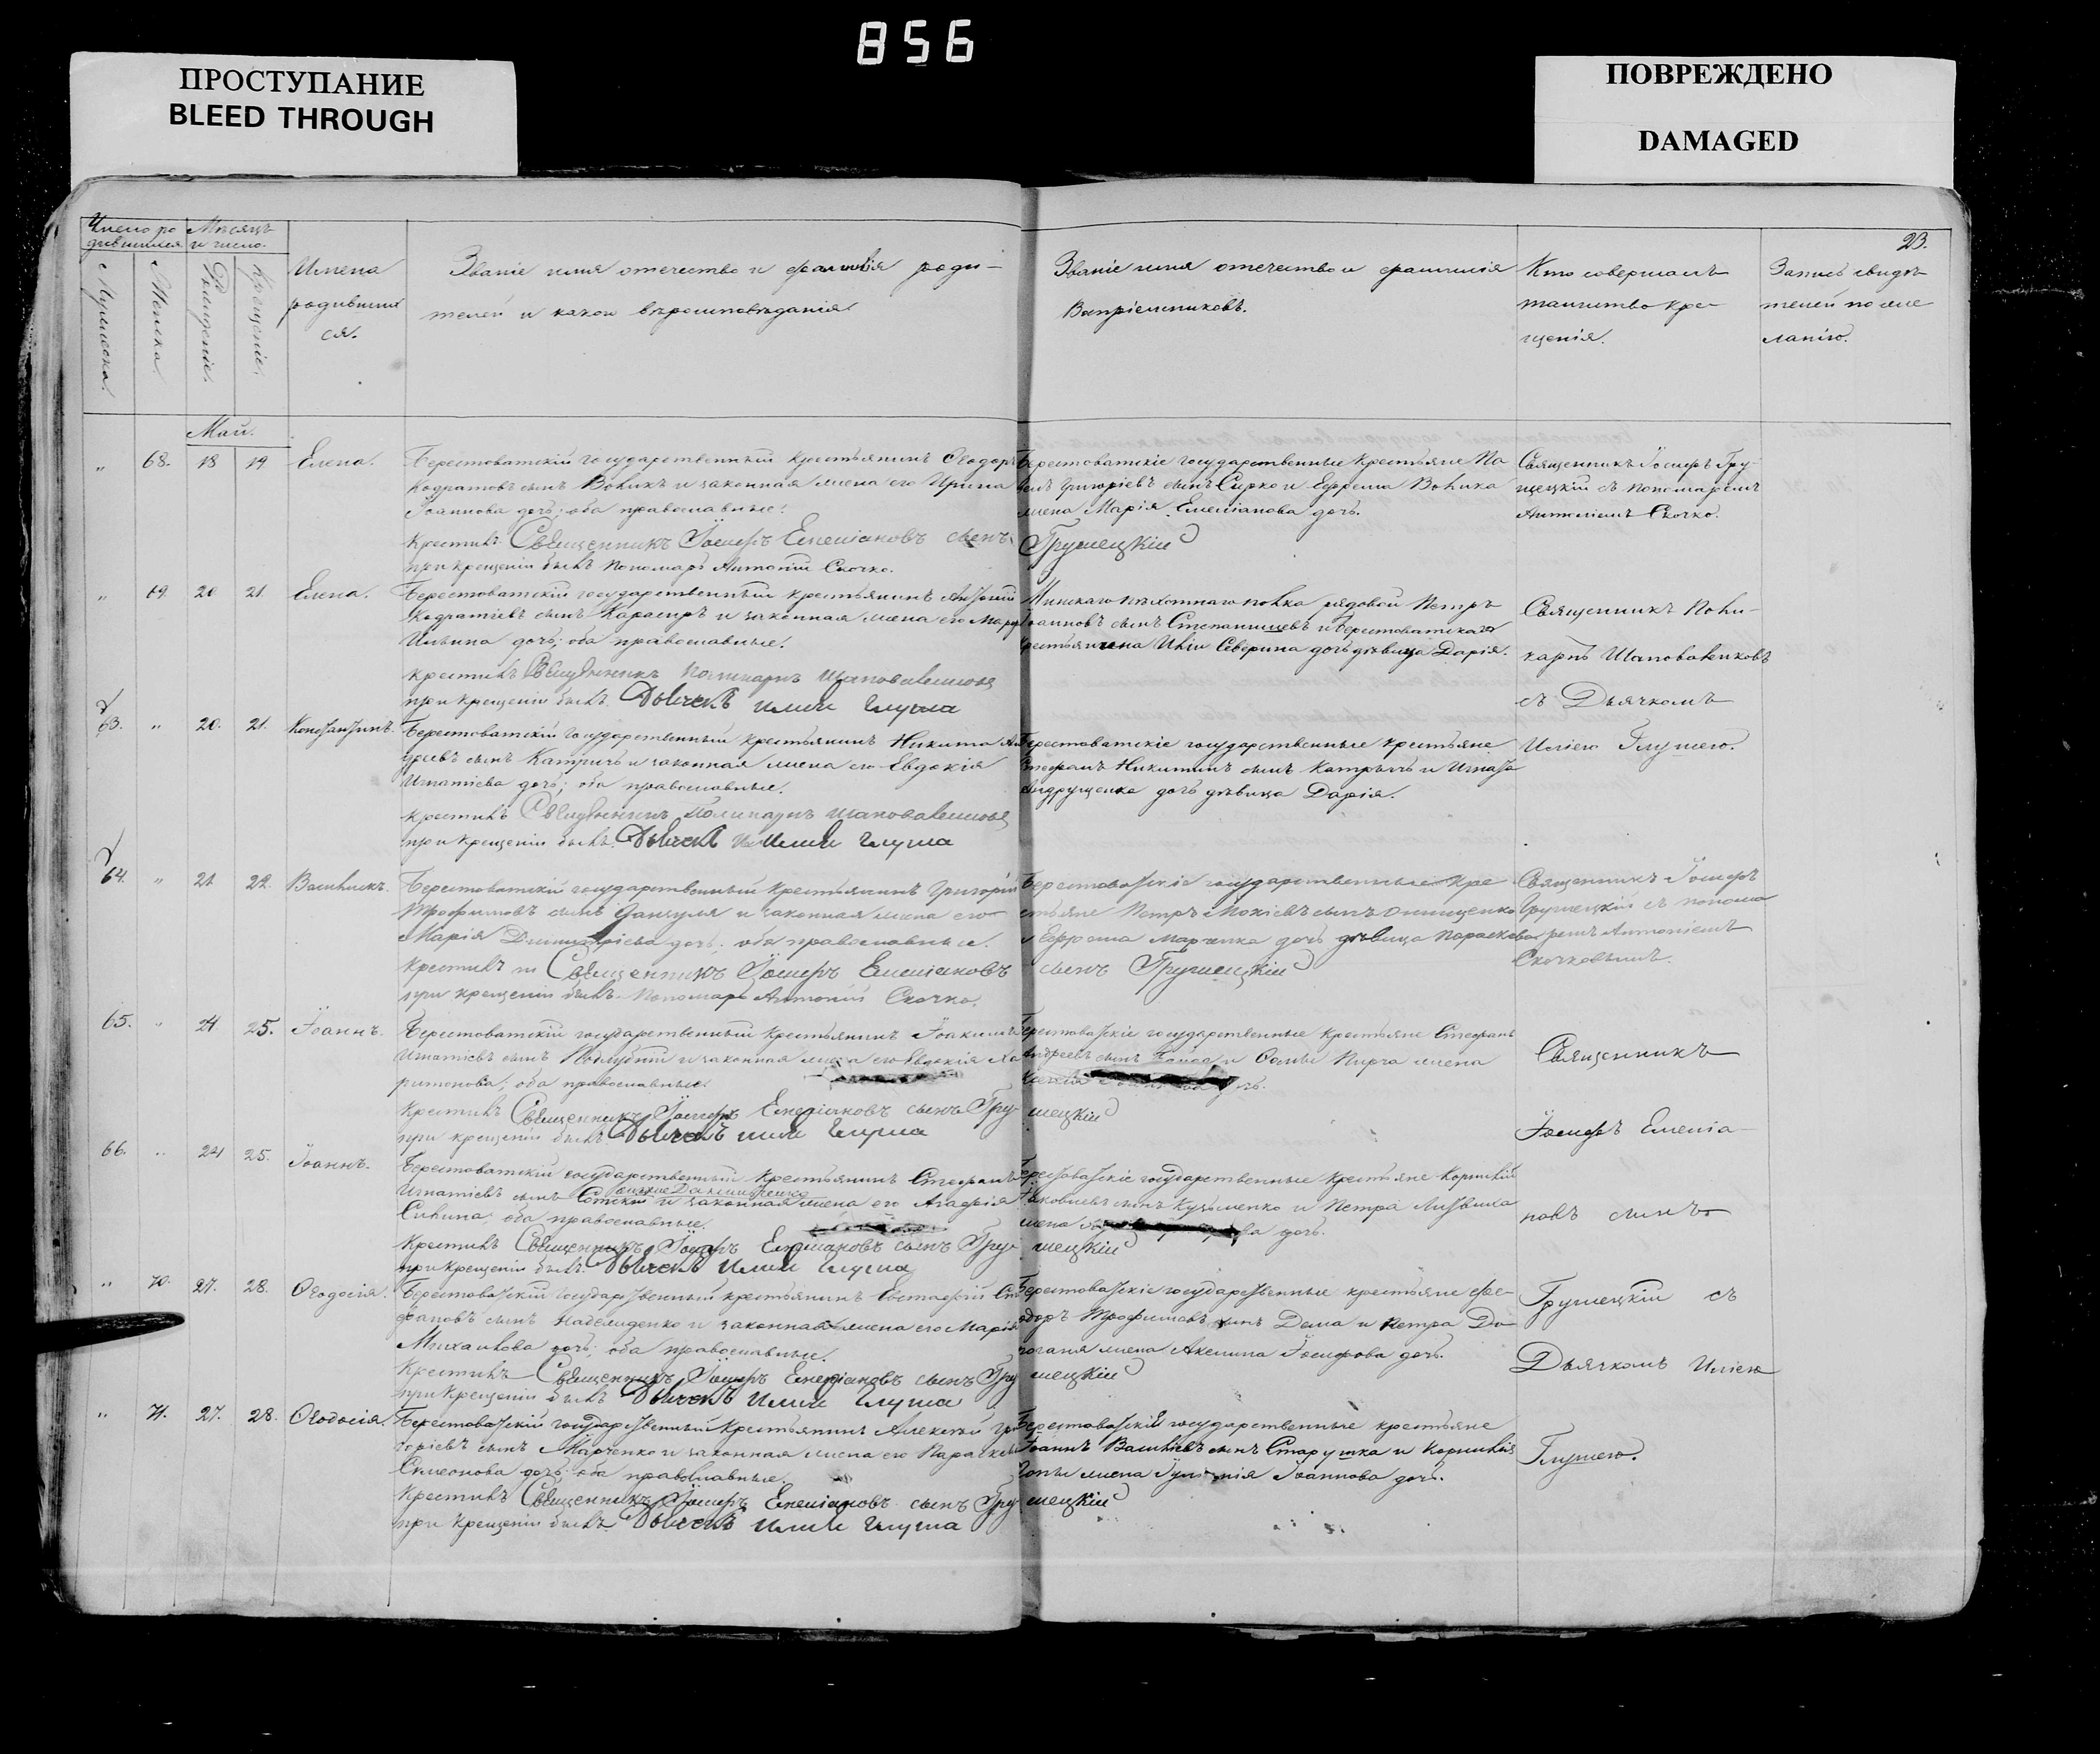 856
ПРОСТУПАНИЕ
BLEED THROUGH
ПОВРЕЖДЕНО
DAMAGED
23.
Число ро
дившихся
Мѣсяцъ
и число.
Мужеска.
Женска.
Рожденіе.
Крещеніе.
Имена
родивших
ся.
Званіе имя отечество и фамилія роди-
телей и какого вѣроисповѣданія.
Званіе имя отечество и фамилія
Воспріемниковъ.
Кто совершалъ
таинство кре-
щенія.
Запись свидѣ
телей по же
ланію.
Май.
„ 68. 18 19 Елена.
Берестоватскій государственный крестьянинъ Ѳеодоръ
Кодратовъ сынъ Вовкъ и законная жена его Ирина
Іоаннова дочь; оба православные.
крестилъ Священникъ Іосифъ Емеліановъ сынъ Грушецкій
при крещеніи былъ пономарь Антоній Скочко.
Берестоватскіе государственные крестьяне
Григоріевъ сынъ Сирко и Ефрема Вовка
жена Марія Емеліанова дочь.
Священникъ Іосифъ Гру-
шецкій съ пономаремъ
Антоніемъ Скочко.
„ 69. 20 21. Елена.
Берестоватскій государственный крестьянинъ Антоній
Кодратіевъ сынъ и законная жена его
Ильина дочь; оба православные.
крестилъ Священникъ Поликарпъ Шаповаленковъ
при крещеніи былъ Дьячекъ Илья Глуша
Минскаго пѣхотнаго полка рядовой Петръ
Іоанновъ сынъ и Берестоватскаго
крестьянина Северина дочь дѣвица Дарія.
Священникъ Поли-
карпъ Шаповаленковъ
съ Дьячкомъ
Иліею Глушею.
63. „ 20. 21. Константинъ.
Берестоватскій государственный крестьянинъ Никита
сынъ и законная жена его Евдокія
Игнатіева дочь; оба православные.
крестилъ Священникъ Поликарпъ Шаповаленковъ
при крещеніи былъ Дьячекъ Илья Глуша
Берестоватскіе государственные крестьяне
Стефанъ Никитинъ сынъ и
Андрущенка дочь дѣвица Дарія.
64. „ 21 22. Василискъ.
Берестоватскій государственный крестьянинъ Григорій
Трофимовъ сынъ и законная жена его
Марія Димитріева дочь; оба православные.
крестилъ Священникъ Іосифъ Емеліановъ сынъ Грушецкій
при крещеніи былъ Пономарь Антоній Скочко.
Берестоватскіе государственные кре
стьяне Петръ Мокіевъ сынъ Онищенко
и Ефрема Марченка дочь дѣвица Параскева
Священникъ Іосифъ
Грушецкій съ понома
ремъ Антоніемъ
Скочковымъ.
65. „ 24 25. Іоаннъ.
Берестоватскій государственный крестьянинъ Іоакимъ
Игнатіевъ сынъ и законная жена его Евдокія Ха
ритонова, оба православные.
крестилъ Священникъ Іосифъ Емеліановъ сынъ Грушецкій
при крещеніи былъ Дьячекъ Илья Глуша
Берестоватскіе государственные крестьяне Стефанъ
Андреевъ сынъ и жена
дочь.
Священникъ
Іосифъ Емеліа-
новъ сынъ
Грушецкій съ
Дьячкомъ Иліею
Глушею.
66. „ 24 25. Іоаннъ.
Берестоватскій государственный крестьянинъ Стефанъ
Игнатіевъ сынъ и законная жена его Агафія
оба православные.
крестилъ Священникъ Іосифъ Емеліановъ сынъ Грушецкій
при крещеніи былъ Дьячекъ Илья Глуша
Берестоватскіе государственные крестьяне Корнилій
Яковлевъ сынъ Кузьменко и Петра Литвина
жена дочь.
„ 70. 27. 28. Ѳеодосія.
Берестоватскій государственный крестьянинъ Евстафій Сте
фановъ сынъ и законная жена его Марія
Михайлова дочь; оба православные.
Крестилъ Священникъ Іосифъ Емеліановъ сынъ Грушецкій
при крещеніи былъ Дьячекъ Илья Глуша
Берестоватскіе государственные крестьяне Фео-
доръ Трофимовъ сынъ и Петра
жена Акилина Іосифова дочь.
„ 71. 27. 28. Ѳеодосія.
Берестоватскій государственный крестьянинъ Алексѣй Гри
горіевъ сынъ Марченко и законная жена его Параскева
Симеонова дочь; оба православные.
Крестилъ Священникъ Іосифъ Емеліановъ сынъ Грушецкій
при крещеніи былъ Дьячекъ Илья Глуша
Берестоватскій государственные крестьяне
Іоаннъ Васильевъ сынъ Старушка и Корнилія
жена Іоаннова дочь.